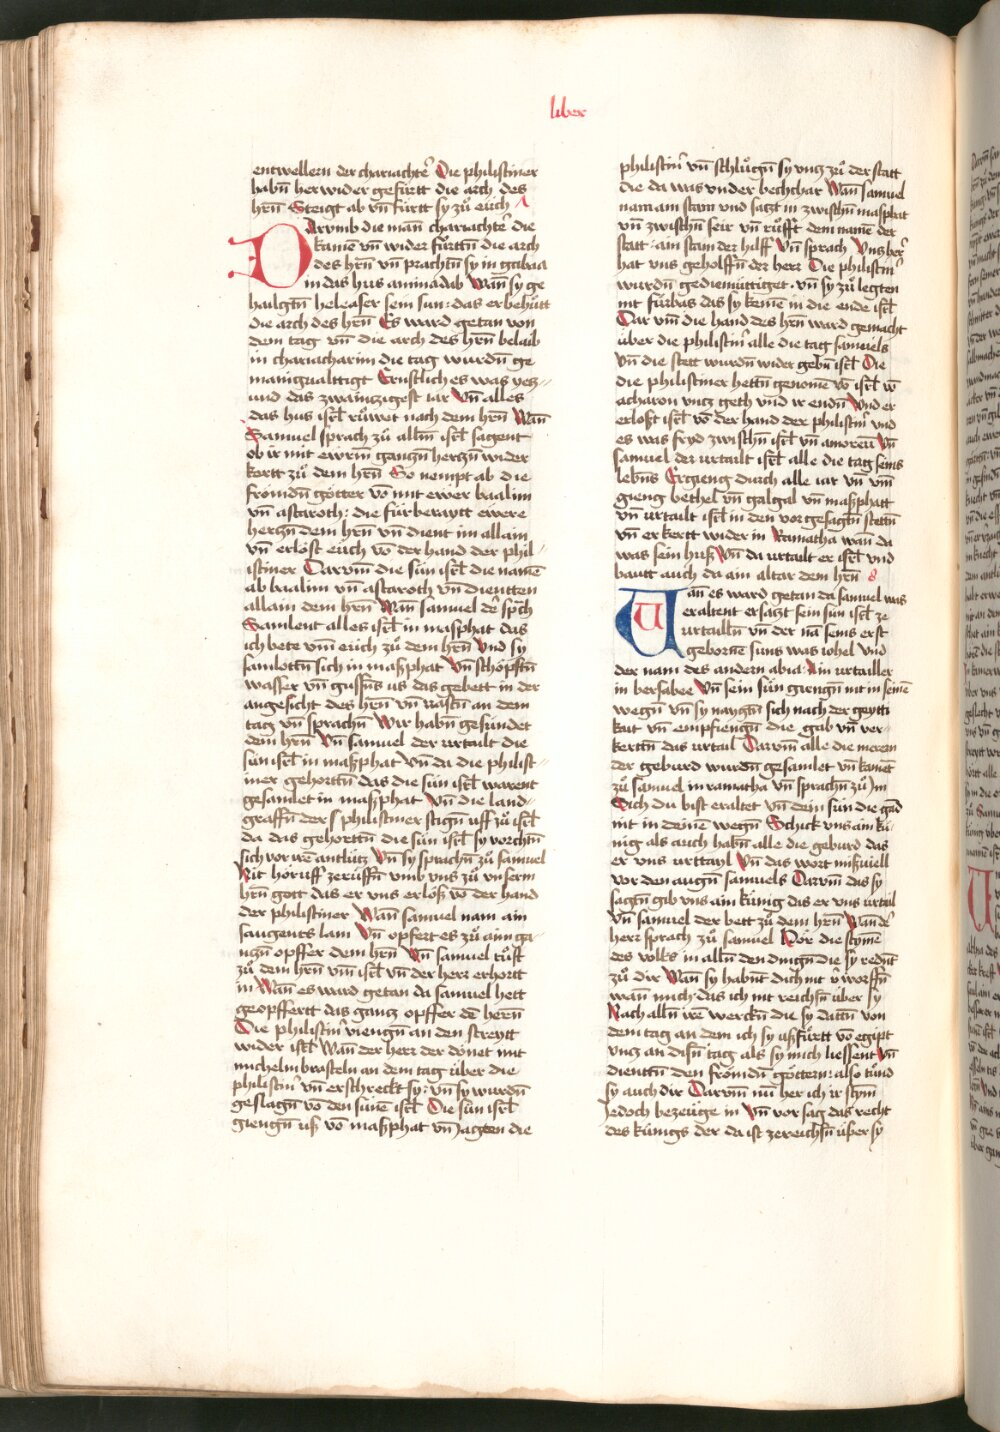 liber
entwellern der chariachtē Die philistiner
habn̄ her wider gefürtt die arch des
hrn̄ Steigt ab vn̄ fürtt sy zů euch
Darvmb die man chariachtē die
kamē vn̄ wider fürttn̄ die arch
des hrn̄ vn̄ prachtn̄ sy in gabaa
in das hus aminadab Wan̄ sy ge
hailgtn̄ heleaser sein sun : das er behütt
die arch des hrn̄ Es ward getan von
dem tag vn̄ die arch des hrn̄ belaib
in chariacharim die tag wurdn̄ ge
manigualttigt Ernstlich es was yetz
und das zwaintzigest iar Vn̄ alles
das hus isrl̄ růwet nach dem hrn̄ Wan̄
Samuel sprach zů allm̄ isrl̄ sagent
ob ir mit ewrm̄ gantzn̄ hertzn̄ wider
kertt zů dem hrn̄ So nempt ab die
fromdn̄ götter vō mit ewer baalim
vn̄ astaroth : die für beraytt ewere
hertzn̄ dem hrn̄ vn̄ dient im allain
vn̄ erlöst euch vō der hand der phil
istiner Darvm̄ die sün isrl̄ die namē
ab baalim vn̄ astaroth vn̄ dientten
allain dem hrn̄ Wan̄ samuel dē sp̄ch
Samlent alles isrl̄ in masphat das
ich bete vm̄ euch zů dem hrn̄ Vnd sy
samlottn̄ sich in maßphat Vn̄ schöpftn̄
wasser vn̄ gussn̄s us das gebett in der
angesicht des hrn̄ vn̄ vastn̄ an dem
tag vn̄ sprachn̄ Wir habn̄ gesündet
dem hrn̄ Vn̄ samuel der vrtailt die
sün isrl̄ in maßphat Vn̄ da die philist
iner gehorttn̄ das die sün isrl̄ warent
gesamlet in maßphat Vn̄ die land
graffn̄ der philistiner stign̄ uff zů isrl̄
da das gehorttn̄ die sün isrl̄ sy vorchtn̄
sich vor ire antlütz Vn̄ sy sprachn̄ zů samuel
Nit hör uff ze rüffn̄ vmb vns zů vnserm
hrn̄ gott das er vns erlöß vō der hand
der philistiner Wan̄ samuel nam ain
saugents lam Vn̄ opfert es zů aim ga
ntzn̄ opffer dem hrn̄ Vn̄ samuel růft
zů dem hrn̄ vm̄ isrl̄ vn̄ der herr erhortt
in Wan̄ es ward getan da samuel hett
geopffertt das gantz opffer dē herrn̄
Die philistin̄ viengn̄ an den streytt
wider isrl̄ Wan̄ der herr der dönet mit
michelm brasteln an dem tag über die
philistin̄ vn̄ erschreckt sy : vn̄ sy wurdn̄
geslagn̄ vō den sünē isrl̄ Die sün isrl̄
giengn̄ uß vō maßphat vn̄ Jagten die
philistin̄ vn̄ schlůgn̄ sy vntz zů der statt
die da was vnder bechchar Wan̄ samuel
nam am stam vnd satzt in zwischn̄ masphat
vn̄ zwischn̄ seir vn̄ růfft dem namē der
statt · ain stain der hilff Vn̄ sprach Vntz her
hat vns geholffn̄ der herr Die philistin̄
wurdn̄ gediemüttiget · vn̄ sy zů legten
nit fürbas das sy kemē in die ende isrl̄
Dar vm̄ die hand des hrn̄ ward gemacht
über die philistin̄ alle die tag samuels
Vn̄ die stett wurdn̄ wider gebn̄ isrl̄ Die
die philistiner hettn̄ genomē vō isrl̄ vō
acharon vntz geth vnd ir endn̄ Vnd er
erlost isrl̄ vō der hand der philistin̄ vnd
es was fryd zwischn̄ isrl̄ vn̄ amoreū Vn̄
samuel der vrtailt isrl̄ alle die tag seins
lebn̄s Er gieng durch alle iar vn̄ vm̄
gieng bethel vn̄ galgal vn̄ maßphatt
vn̄ vrtailt isrl̄ in den vorgesagtn̄ stettn̄
vn̄ er kertt wider in Ramatha wan̄ da
was sein huß Vn̄ da vrtailt er isrl̄ vnd
bautt auch da ain altar dem hrn̄ 8
Wan̄ es ward getan da samuel was
eraltent er satzt sein sün isrl̄ ze
vrtailln̄ vn̄ der nā seins erst
gebornē suns was iohel vnd
der nam des andern abia · Ain vrtailler
in bersabee Vn̄ sein sün giengn̄ nit in seinē
wegn̄ vn̄ sy naygtn̄ sich nach der geytti
kait vn̄ empfiengn̄ die gab vn̄ ver
kerttn̄ das vrtail Darvm̄ alle die merern
der geburd wurdn̄ gesamlet vn̄ kament
zů samuel in ramatha vn̄ sprachn̄ zů Jm
Sich du bist eraltet vn̄ dein sün die gand
nit in deinē wegn̄ Schick vns ain kü
nig als auch habn̄ alle die geburd das
er vns vrttayl Vn̄ das wort mißuiell
vor den augn̄ samuels Darvm̄ das sy
sagtn̄ gib vns ain künig das er vns vrtail
Vn̄ samuel der bett zů dem hrn̄ Wan̄ dē
herr sprach zů samuel Hör die stymē
des volks in alln̄ den dingn̄ die sy redn̄t
zů dir Wan̄ sy habn̄t dich nit v̄worffn̄
wan̄ mich · das ich nit reichsn̄ über sy
Nach alln̄ irē werckn̄ die sy dattn̄ von
dem tag an dem ich sy ußfürtt vō egipt
vntz an disn̄ tag als sy mich liessent Vn̄
dienttn̄ den fromdn̄ göttern : also tůnd
sy auch dir Darvm̄ nū hör ich ir stym̄
Jedoch bezeüge in Vn̄ vor sag das recht
des künigs der da ist ze reichsn̄ über sy